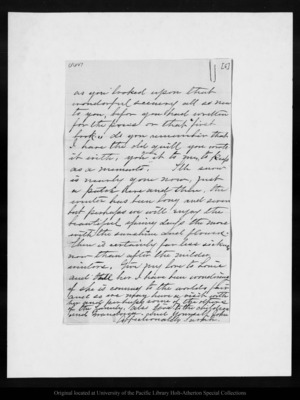 [2]
as you looked upon that
wonderful scenery all so new
to you, before you had written
for the press or that "first
book", do you remember that
I have the old quill you wrote
it with, you it to me to keep
as a memento. The snow
is nearly gone now, just
a patch here and there. The
winter has been long and severe
but perhaps we will enjoy the
beautiful spring days the more
with the sunshine and flowers.
There is certainly far less sickness
now than after the milder
winters. Give my love to
and tell her I have been wondering
if she is coming to the world's fair
and so we may have a visit with
her and perhaps some of the others
of the family, also love to the children
and Grandma, and yourself from
Affectionately Sarah
Original located at University of the Pacific Library Holt-Atherton Special Collections